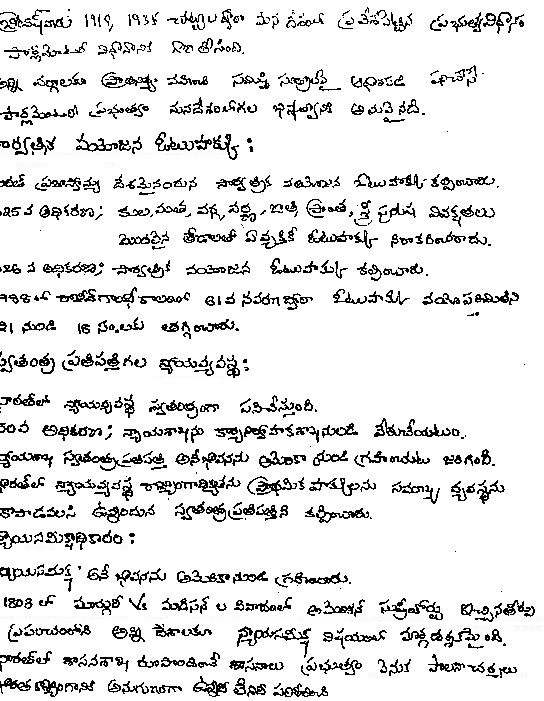 బ్రిటిష్‌వారు 1919, 1935 చట్టాల ద్వారా మన దేశంలో ప్రవేశపెట్టిన ప్రభుత్వవిధానం
పార్లమెంటరీ విధానానికి దారి తీసింది.
అన్ని వర్గాలకు ప్రాతినిధ్యం వహించి సమిష్టి సూత్రంపై ఆధారపడి పనిచేసే
పార్లమెంటరీ ప్రభుత్వం మనదేశంలోగల భిన్నత్వానికి అనువైనది.
సార్వత్రిక వయోజన ఓటుహక్కు :
భారత్ ప్రజాస్వామ్య దేశమైనందున సార్వత్రిక వయోజన ఓటుహక్కు కల్పించారు.
325వ అధికరణ; కుల, మత, వర్గ, వర్ణ, జాతి ప్రాంత, స్త్రీ పురుష వివక్షతలు
మొదలైన తేడాలతో ఏ వ్యక్తికీ ఓటుహక్కు నిరాకరించరాదు.
326 వ అధికరణ; సార్వత్రిక వయోజన ఓటుహక్కు కల్పించారు.
1988 లో రాజీవ్‌గాంధీ కాలంలో 61 వ సవరణ ద్వారా ఓటుహక్కు వయోపరిమితిని
21 నుండి 18 సం.లకు తగ్గించారు.
స్వతంత్ర ప్రతిపత్తిగల న్యాయవ్యవస్థ :
భారత్‌లో న్యాయవ్యవస్థ స్వతంత్రంగా పనిచేస్తుంది.
50వ అధికరణ; న్యాయశాఖను కార్యనిర్వాహకశాఖనుండి వేరుచేయటం.
న్యాయశాఖ స్వతంత్రప్రతిపత్తి అనేభావనను అమెరికా నుండి గ్రహించుట జరిగింది.
భారత్‌లో న్యాయవ్యవస్థ రాజ్యాంగాధిపత్యను ప్రాథమిక హక్కులను సమాఖ్య వ్యవస్థను
కాపాడవలసి ఉన్నందున స్వతంత్రప్రతిపత్తిని కల్పించారు.
న్యాయసమీక్షాధికారం :
న్యాయసమీక్ష' అనే భావనను అమెరికానుండి గ్రహించారు.
1803 లో మార్బురీ Vs మాడిసన్ ల వివాదంలో అమెరికన్ సుప్రీంకోర్టు ఇచ్చినతీర్పు
ప్రపంచంలోని అన్ని దేశాలకూ న్యాయసమీక్ష విషయంలో మార్గదర్శకమైంది.
భారత్‌లో శాసనశాఖ రూపొందించే శాసనాలు ప్రభుత్వం చేసే పాలనాచర్యలు
భారతరాజ్యాంగానికి అనుగుణంగా ఉన్నది లేనిది పరిశీలించి